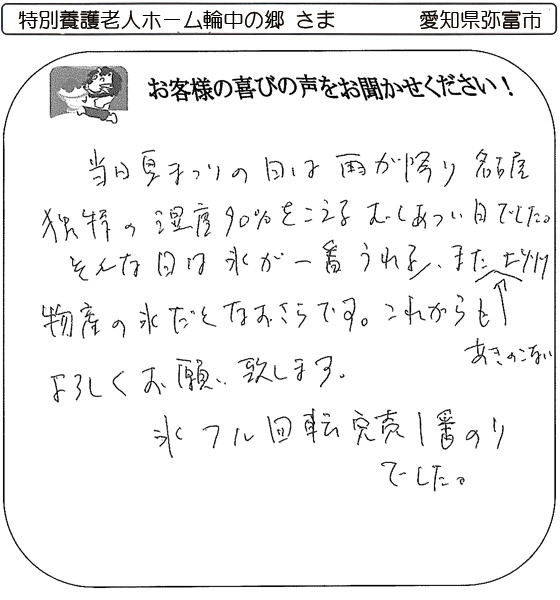 特別養護老人ホーム輪中の郷 さま 愛知県弥富市
お客様の喜びの声をお聞かせください!
当日夏まつりの日は雨が降り 名古屋
独特の湿度90%をこえるむしあつい日でした。
そんな日は氷が一番うれる、また
物産の氷だとなおさらです。これからも
あきのこない
よろしくお願い致します。
氷フル回転完売1番のり
でした。